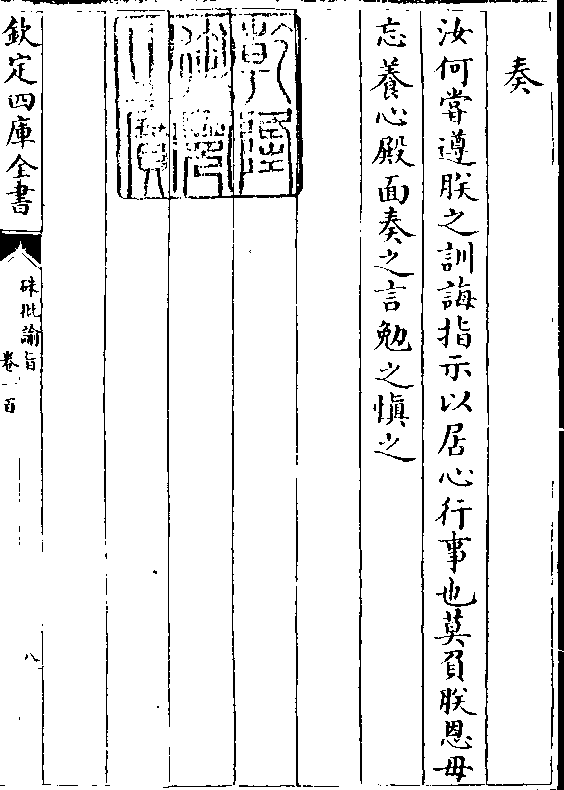 奏
汝何嘗遵朕之訓誨指示以居心行事也莫負朕恩毋
忘養心殿面奏之言勉之慎之
乾隆
御覽
之寶
欽定四庫全書
硃批諭旨
卷一百
八